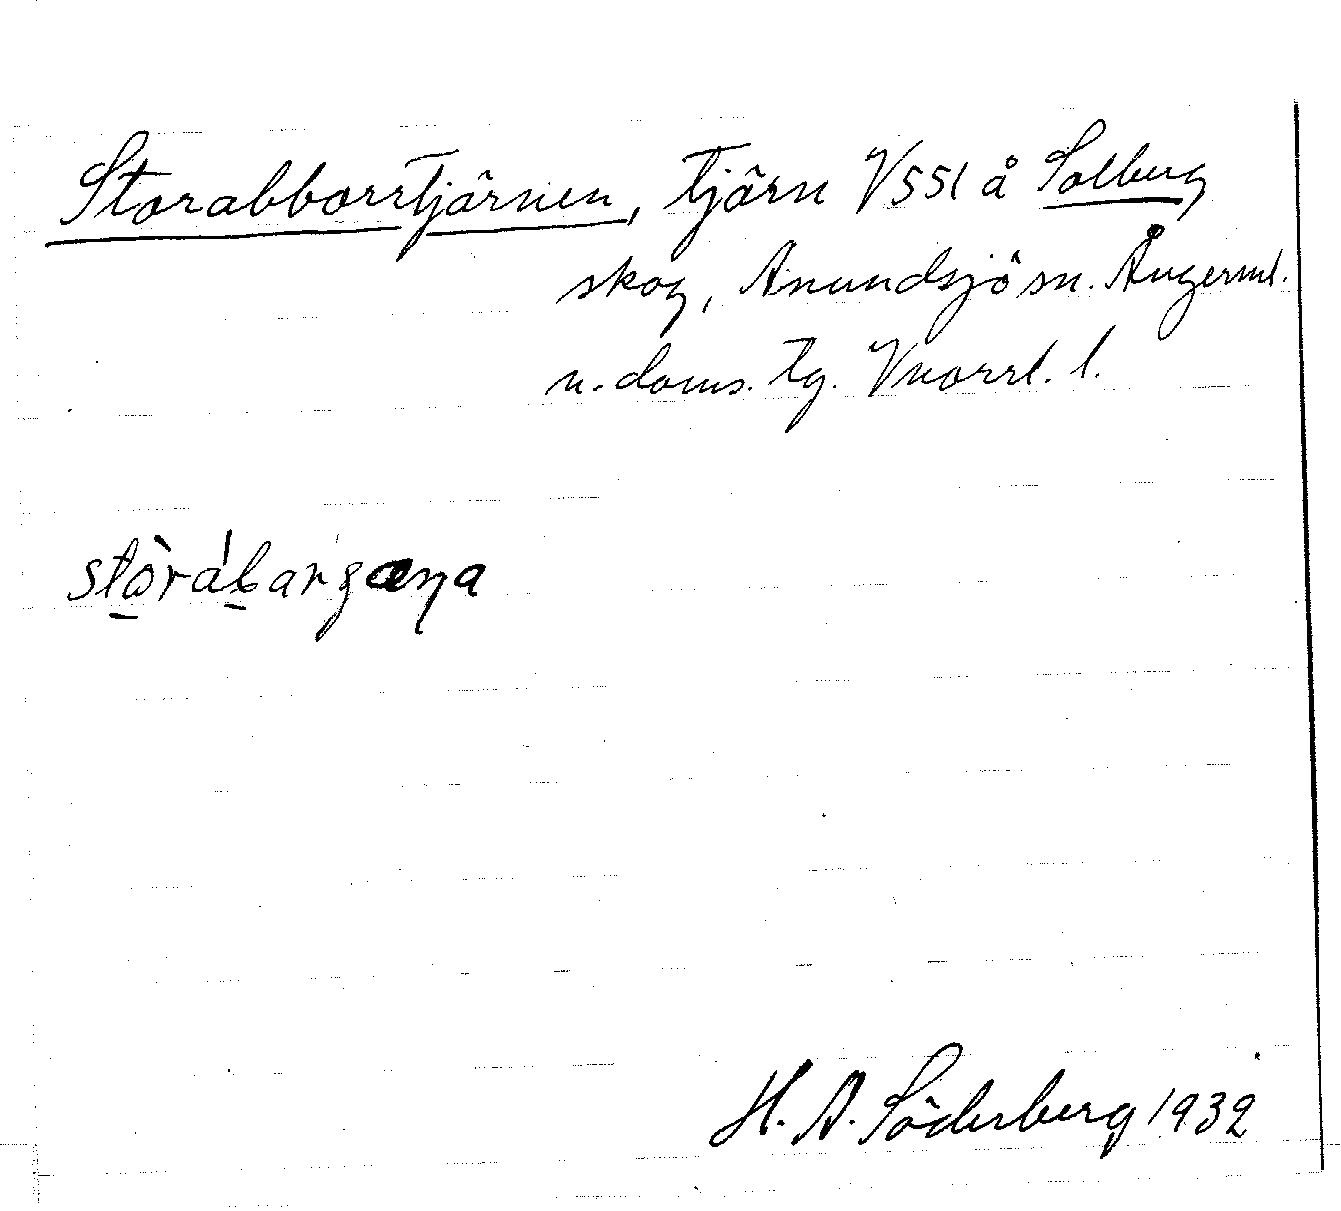 Storabborrtjärnen, tjärn VSSV å Solberg
skog, Anundsjö sn. Ångerml.
n. doms. tg. Vnorrl. l.
H. A. Söderberg 1932